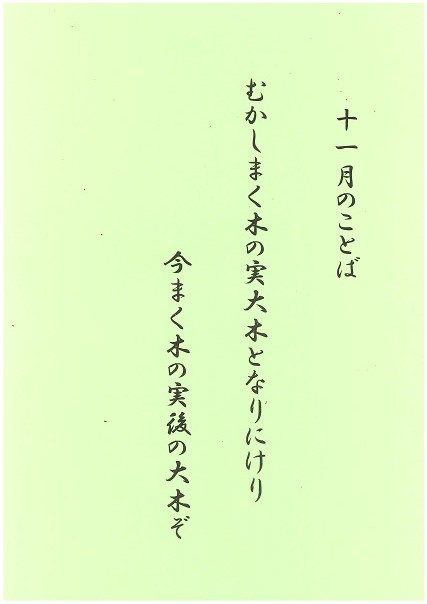 十一月のことば
むかしまく木の実大木となりにけり
今まく木の実後の大木ぞ